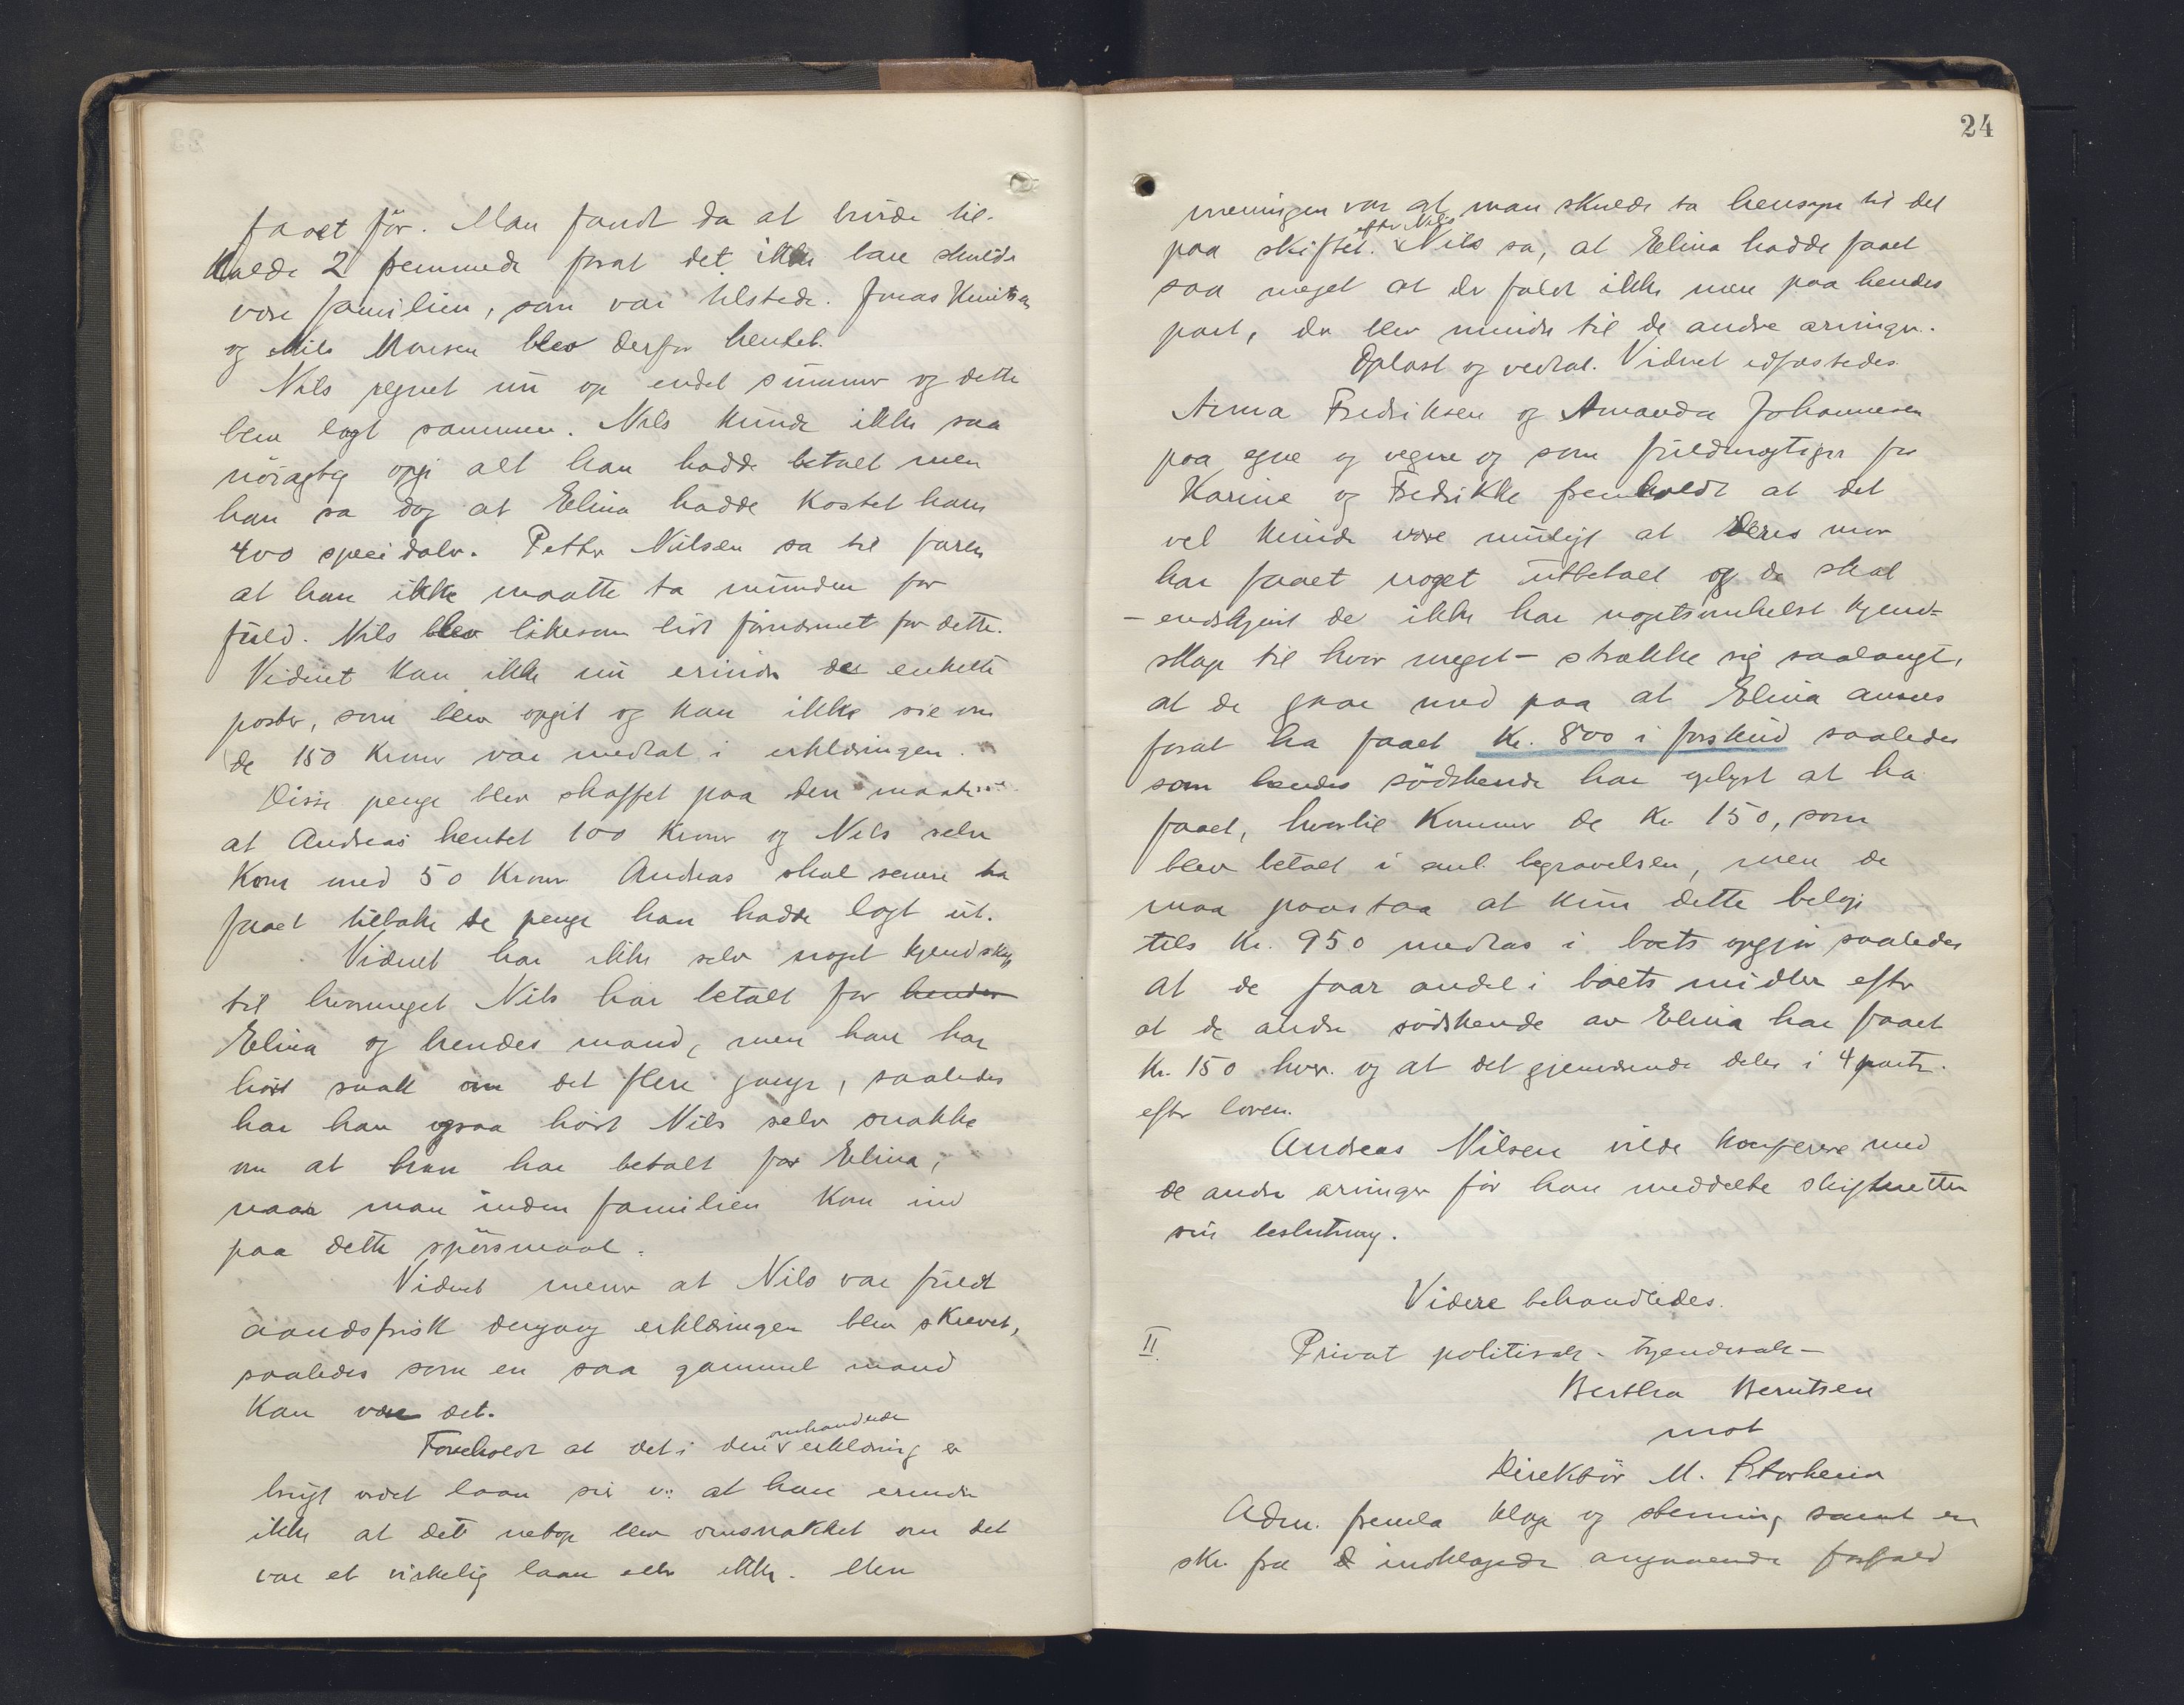 faaet før. Man fandt da at burde til-
kalde 2 fremmede forat det ikke bare skulde
være familien, som var tilstede. Jonas Knutsen
og Nils Monsen blev derfor hentet.
Nils regnet nu op endel summer og dette
blev lagt sammen. Nils kunde ikke saa
nöiagtig opgi alt han hadde betalt men
han sa dog at Elina hadde kostet ham
400 speeidaler. Petter Nilsen sa til faren
at han ikke maatte ta munden for
fuld. Nils blev likesom lidt fornærmet for dette.
Vidnet kan ikke nu erindre de enkelte
poster, som blev opgit og kan ikke sie om
de 150 kroner var medtat i erklæringen.
Disse penge blev skaffet paa den maate
at Andreas hentet 100 kroner og Nils selv
kom med 50 kroner. Andreas skal senere ha
faaet tilbake de penge han hadde lagt ut.
Vidnet har ikke selv noget kjendskap
til hvormeget Nils har betalt for hendes
Elina og hendes mand, men han har
hört snakk om det flere gange, saaledes
har han ogsaa hört Nils selv snakke
om at han har betalt for Elina,
naar man inden familien kom ind
paa dette spörsmaal.
Vidnet mener at Nils var fuldt
aandsfrisk dengang erklæringen blev skrevet,
saaledes som en saa gammel mand
kan være det.
Foreholdt at det i den omhandlede erklæring er
brugt ordet laan sier v: at han erindrer
ikke at det netop blev omsnakket om det
var et virkelig laan eller ikke. Men
24
meningen var at man skulde ta hensyn til det
paa skiftet efter Nils. Nils sa, at Elina hadde faaet
saa meget at der faldt ikke mere paa hendes
part, da blev mindre til de andre arvinger.
Oplæst og vedtat. Vidnet edfæstedes.
Anna Fredriksen og Amanda Johannesen
paa egne og vegne og som fuldmægtiger for
Karine og Fredrikke fremholdt at det
vel kunde være muligt at deres mor
har faaet noget utbetalt og de skal
- endskjønt de ikke har nogetsomhelst kjend=
skap til hvor meget - strække sig saalangt,
at de gaar med paa at Elina ansees
forat ha faaet kr. 800 i forskud saaledes
som hendes södskende har oplyst at ha
faaet, hvortil kommer de kr 150, som
blev betalt i anl. begravelsen, men de
maa paastaa at kun dette beløp
tils kr. 950 medtas i boets opgjør saaledes
at de faar andel i boets midler efter
at de andre södskende av Elina har faaet
kr. 150 hver. og at det gjenværende deles i 4 parter
efter loven.
Andreas Nilsen vilde konferere med
de andre arvinger før han meddelte skifteretten
sin beslutning.
Videre behandledes.
II. Privat politisak - tyendesak -
Bertha Berntsen
mot
Direktör M. Storheim
Adm. fremla klage og stevning samt en
skr. fra indklagede angaaende forfald